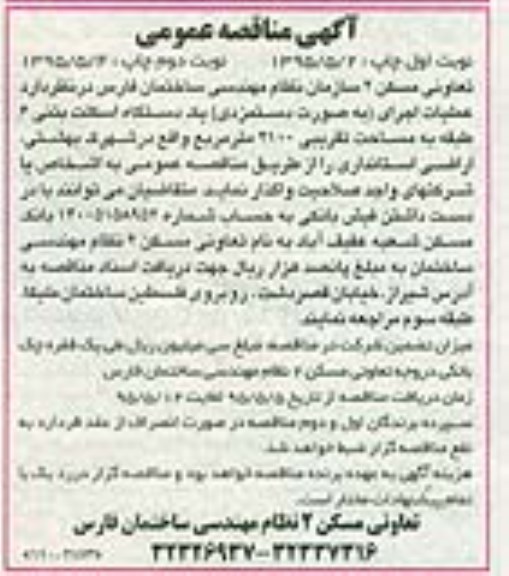 آگهی مناقصه عمومی
نوبت اول چاپ: ۱۳۹۵/۵/۲ نوبت دوم چاپ: ۱۳۹۵/۵/۴
تعاونی مسکن ۲ سازمان نظام مهندسی ساختمان فارس در نظر دارد
عملیات اجرای (به صورت دستمزدی) یک دستگاه اسکلت بتنی ۴
طبقه به مساحت تقریبی ۲۱۰۰ مترمربع واقع در شهرک بهشتی،
اراضی استانداری را از طریق مناقصه عمومی به اشخاص یا
شرکتهای واجد صلاحیت واگذار نماید. متقاضیان می توانند با در
دست داشتن فیش بانکی به حساب شماره بانک
مسکن شعبه عفیف آباد به نام تعاونی مسکن ۲ نظام مهندسی
ساختمان به مبلغ پانصد هزار ریال جهت دریافت اسناد مناقصه به
آدرس شیراز، خیابان قصردشت، روبروی فلسطین ساختمان
طبقه سوم مراجعه نمایند.
میزان تضمین شرکت در مناقصه مبلغ سی میلیون ریال طی یک فقره چک
بانکی در وجه تعاونی مسکن ۲ نظام مهندسی ساختمان فارس
زمان دریافت مناقصه از تاریخ ۹۵/۵/۵ لغایت ۹۵/۵/۱۴
سپرده برندگان اول و دوم مناقصه در صورت انصراف از عقد قرارداد به
نفع مناقصه گزار ضبط خواهد شد.
هزینه آگهی به عهده برنده مناقصه خواهد بود و مناقصه گزار در رد یک یا
تمام پیشنهادات مختار است.
تعاونی مسکن ۲ نظام مهندسی ساختمان فارس
۳۲۳۳۷۳۱۶-۳۲۳۲۶۹۳۷